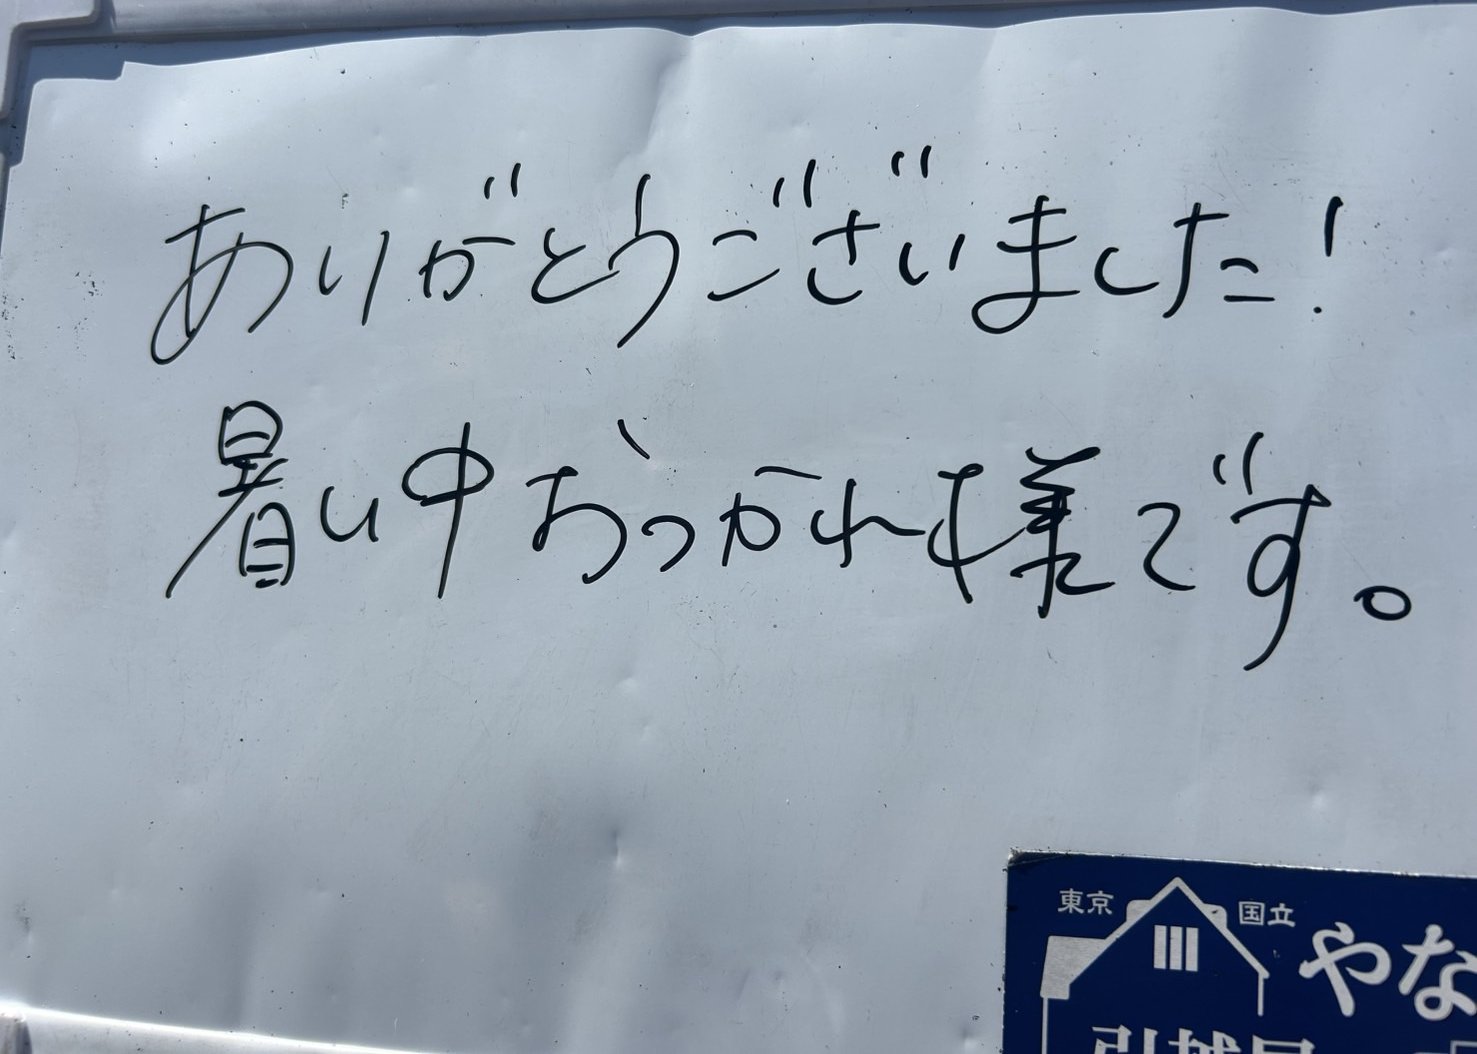 ありがとうございました!
暑い中おつかれ様です。
東京 国立
やな
引越屋